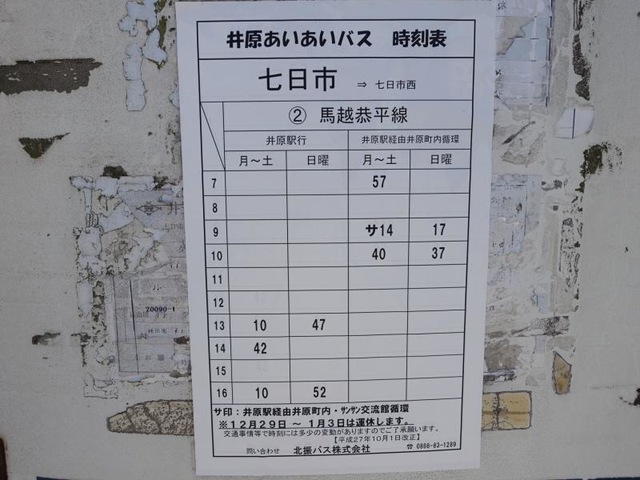 井原あいあいバス 時刻表
七日市 ⇒ 七日市西
② 馬越恭平線
井原駅行 井原駅経由井原町内循環
月～土 日曜 月～土 日曜
7 57
8
9 サ14 17
10 40 37
11
12
13 10 47
14 42
15
16 10 52
サ印：井原駅経由井原町内・サンサン交流館循環
※１２月２９日 ～ １月３日は運休します。
交通事情等で時刻には多少の変動がありますのでご了承願います。
【平成27年10月1日改正】
問い合わせ 北振バス株式会社 ☎ 0866-83-1289
70090-1